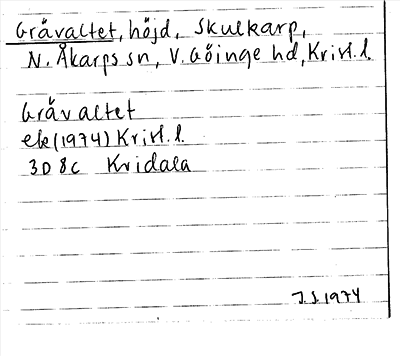 Grävaltet, höjd, Skulkarp,
N. Åkarps sn, V. Göinge hd, Krist. l.
Grävaltet
ek (1974) Krist. l.
3D 8c Kridala
J.S. 1974